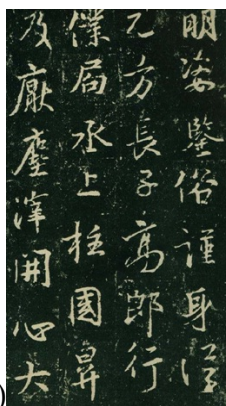 明姿鑒俗謹身
方長子高郎行
僕局丞上柱國昇
及厥塵滓開心大